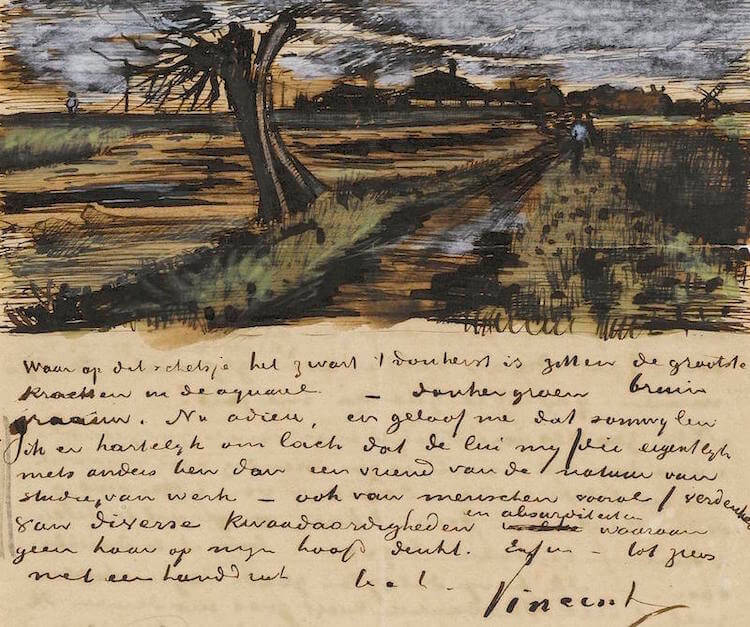 Waar op dit schetsje het zwart 't donkerst is zitten de grootste
krachten in de aquarel – donkergroen bruin
graauw. Nu adieu, en geloof me dat somwylen
ik er hartelyk om lach dat de lui my / die eigentlyk
niets anders ben dan een vriend van de natuur van
studie, van werk – ook van menschen vooral / verdenken
van diverse kwaadaardigheden en absurditeiten waaraan
geen haar op myn hoofd denkt. Enfin – tot ziens
met een handdruk
Vincent